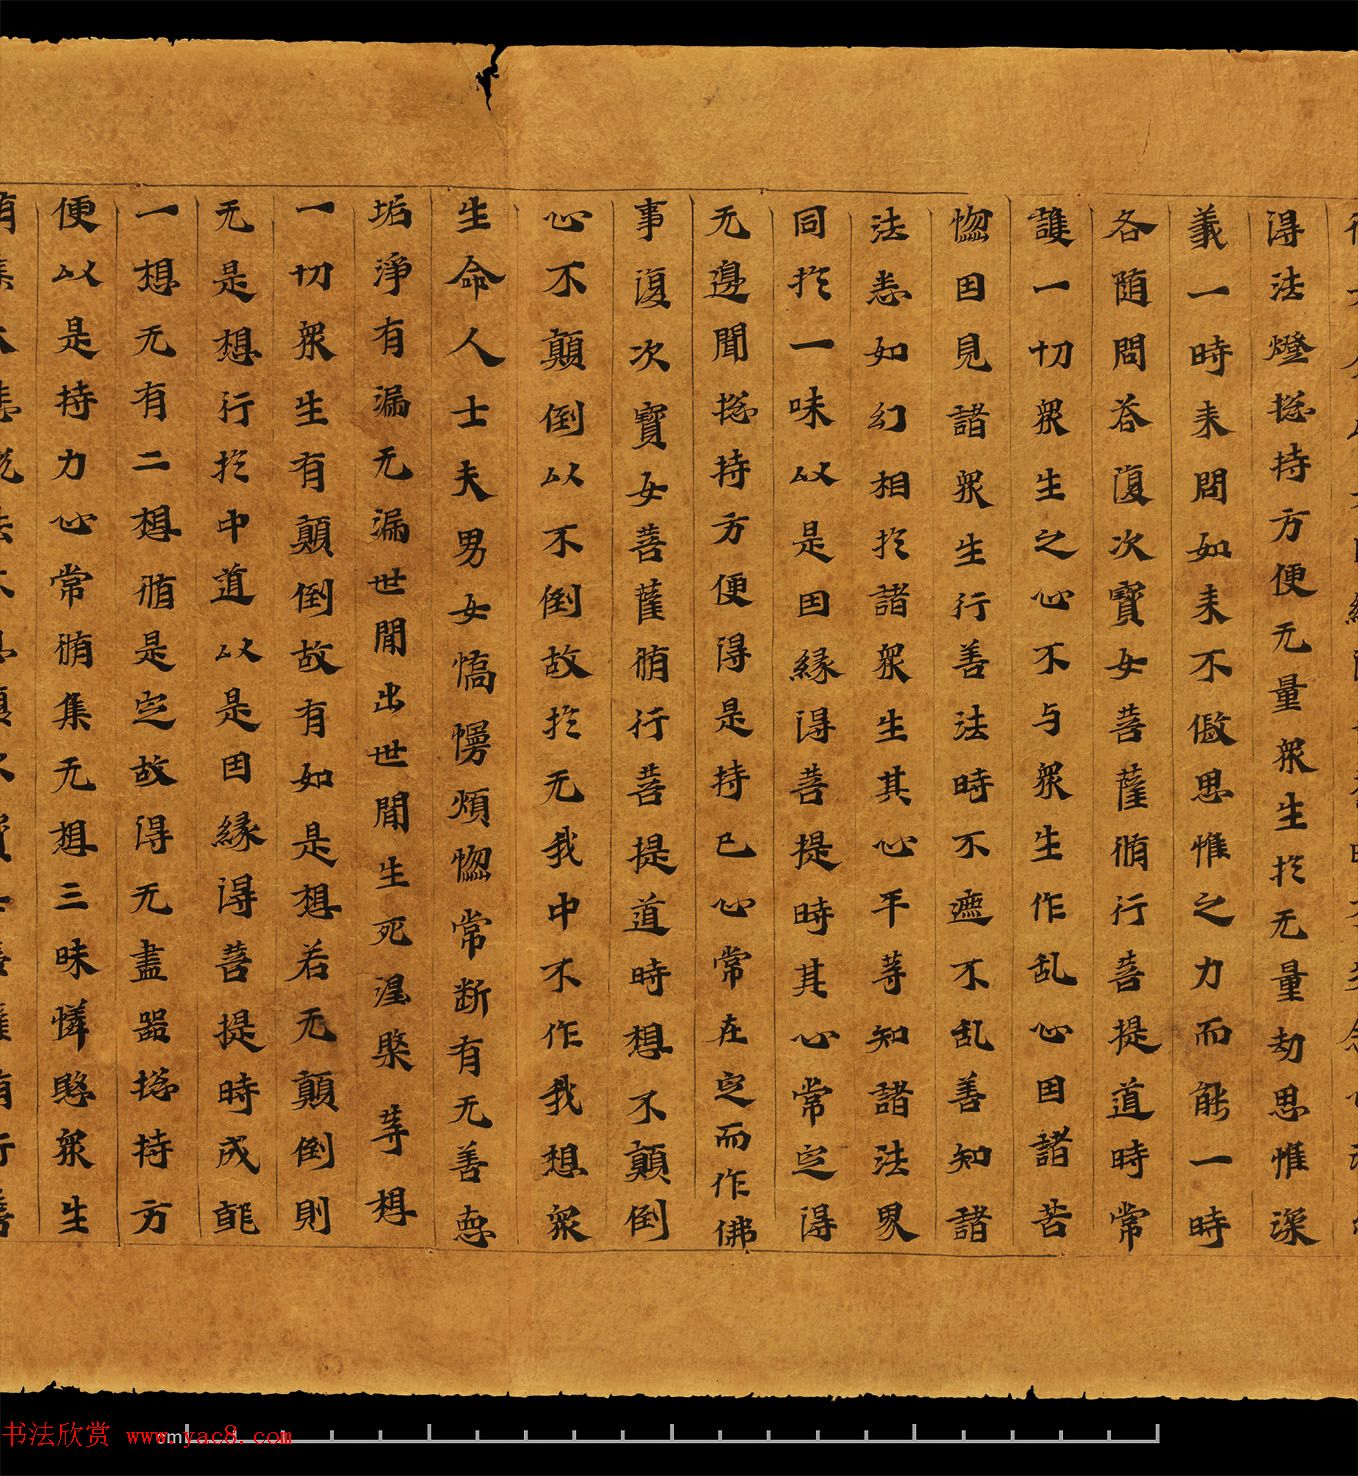 得法燈捴持方便无量衆生扵无量劫思惟深
義一時来問如来不假思惟之力而能一時
各随問荅復次寳女菩薩脩行菩提道時常
護一切衆生之心不与衆生作乱心因諸苦
惱因見諸衆生行善法時不遮不乱善知諸
法悉如幻相扵諸衆生其心平等知諸法界
同扵一味以是因縁得菩提時其心常定得
无邊聞捴持方便得是持已心常在定而作佛
事復次寳女菩薩脩行菩提道時想不顛倒
心不顛倒以不倒故扵无我中不作我想衆
生命人士夫男女憍慢煩惱常断有无善惡
垢淨有漏无漏世間出世間生死涅槃等想
一切衆生有顛倒故有如是想若无顛倒則
无是想行扵中道以是因縁得菩提時成就
一想无有二想脩是定故得无盡器捴持方
便以是持力心常脩集无想三昧憐愍衆生
书法欣赏 www.yac8.com
cm